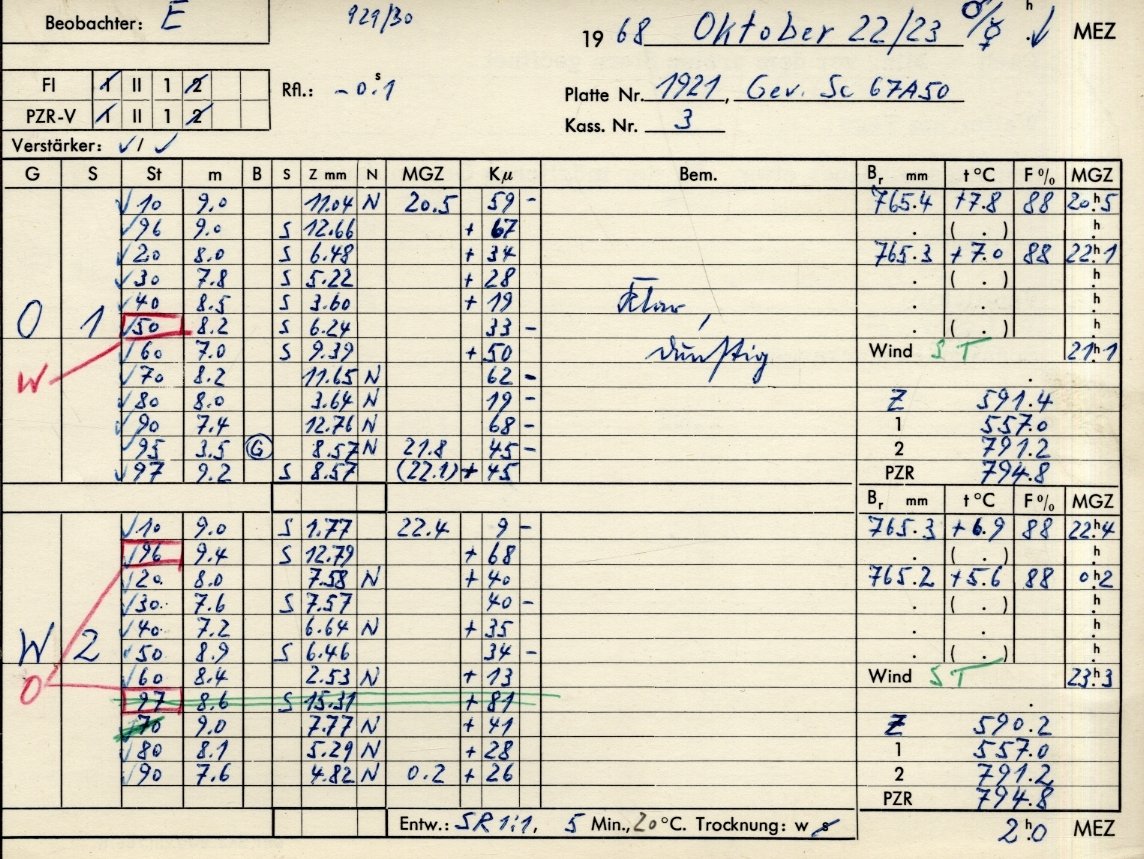 Beobachter: E 929/30 19 68 Oktober 22/23 ♂/☿ h MEZ
FI I II 1 2 Rfl.: -0.ˢ1 Platte Nr. 1921, Gev. Sc 67A50
PZR-V I II 1 2 Kass. Nr. 3
Verstärker: ✓/✓
G S St m B S Z mm N MGZ Kμ Bem. Br mm t °C F % MGZ
✓10 9.0 11.04 N 20.5 59 - 765.4 +7.8 88 20ʰ.5
✓96 9.0 S 12.66 + 67 . ( . ) h
✓20 8.0 S 6.48 + 34 765.3 +7.0 88 22ʰ.1
✓30 7.8 S 5.22 + 28 . ( . ) h
✓40 8.5 S 3.60 + 19 Klar, . . h
O 1 ✓50 8.2 S 6.24 33 - . ( . ) h
✓60 7.0 S 9.39 + 50 dunstig Wind ST 21ʰ.1
W ✓70 8.2 11.65 N 62 -
✓80 8.0 3.64 N 19 - Z 591.4
✓90 7.4 12.76 N 68 - 1 557.0
✓95 3.5 G 8.57 N 21.8 45 - 2 791.2
✓97 9.2 S 8.57 (22.1) + 45 PZR 794.8
Br mm t °C F % MGZ
✓10 9.0 S 1.77 22.4 9 - 765.3 +6.9 88 22ʰ.4
✓96 9.4 S 12.79 + 68 . ( . ) h
✓20 8.0 7.58 N + 40 765.2 +5.6 88 0ʰ.2
✓30 7.6 S 7.57 40 - . ( . ) h
✓40 7.2 6.64 N + 35 . . h
W 2 ✓50 8.9 S 6.46 34 - . ( . ) h
✓60 8.4 2.53 N + 13 Wind ST 23ʰ.3
O 97 8.6 S 15.31 + 81
70 9.0 7.77 N + 41 Z 590.2
✓80 8.1 5.29 N + 28 1 557.0
✓90 7.6 4.82 N 0.2 + 26 2 791.2
PZR 794.8
Entw.: SR 1:1, 5 Min., 20 °C. Trocknung: w s 2ʰ.0 MEZ